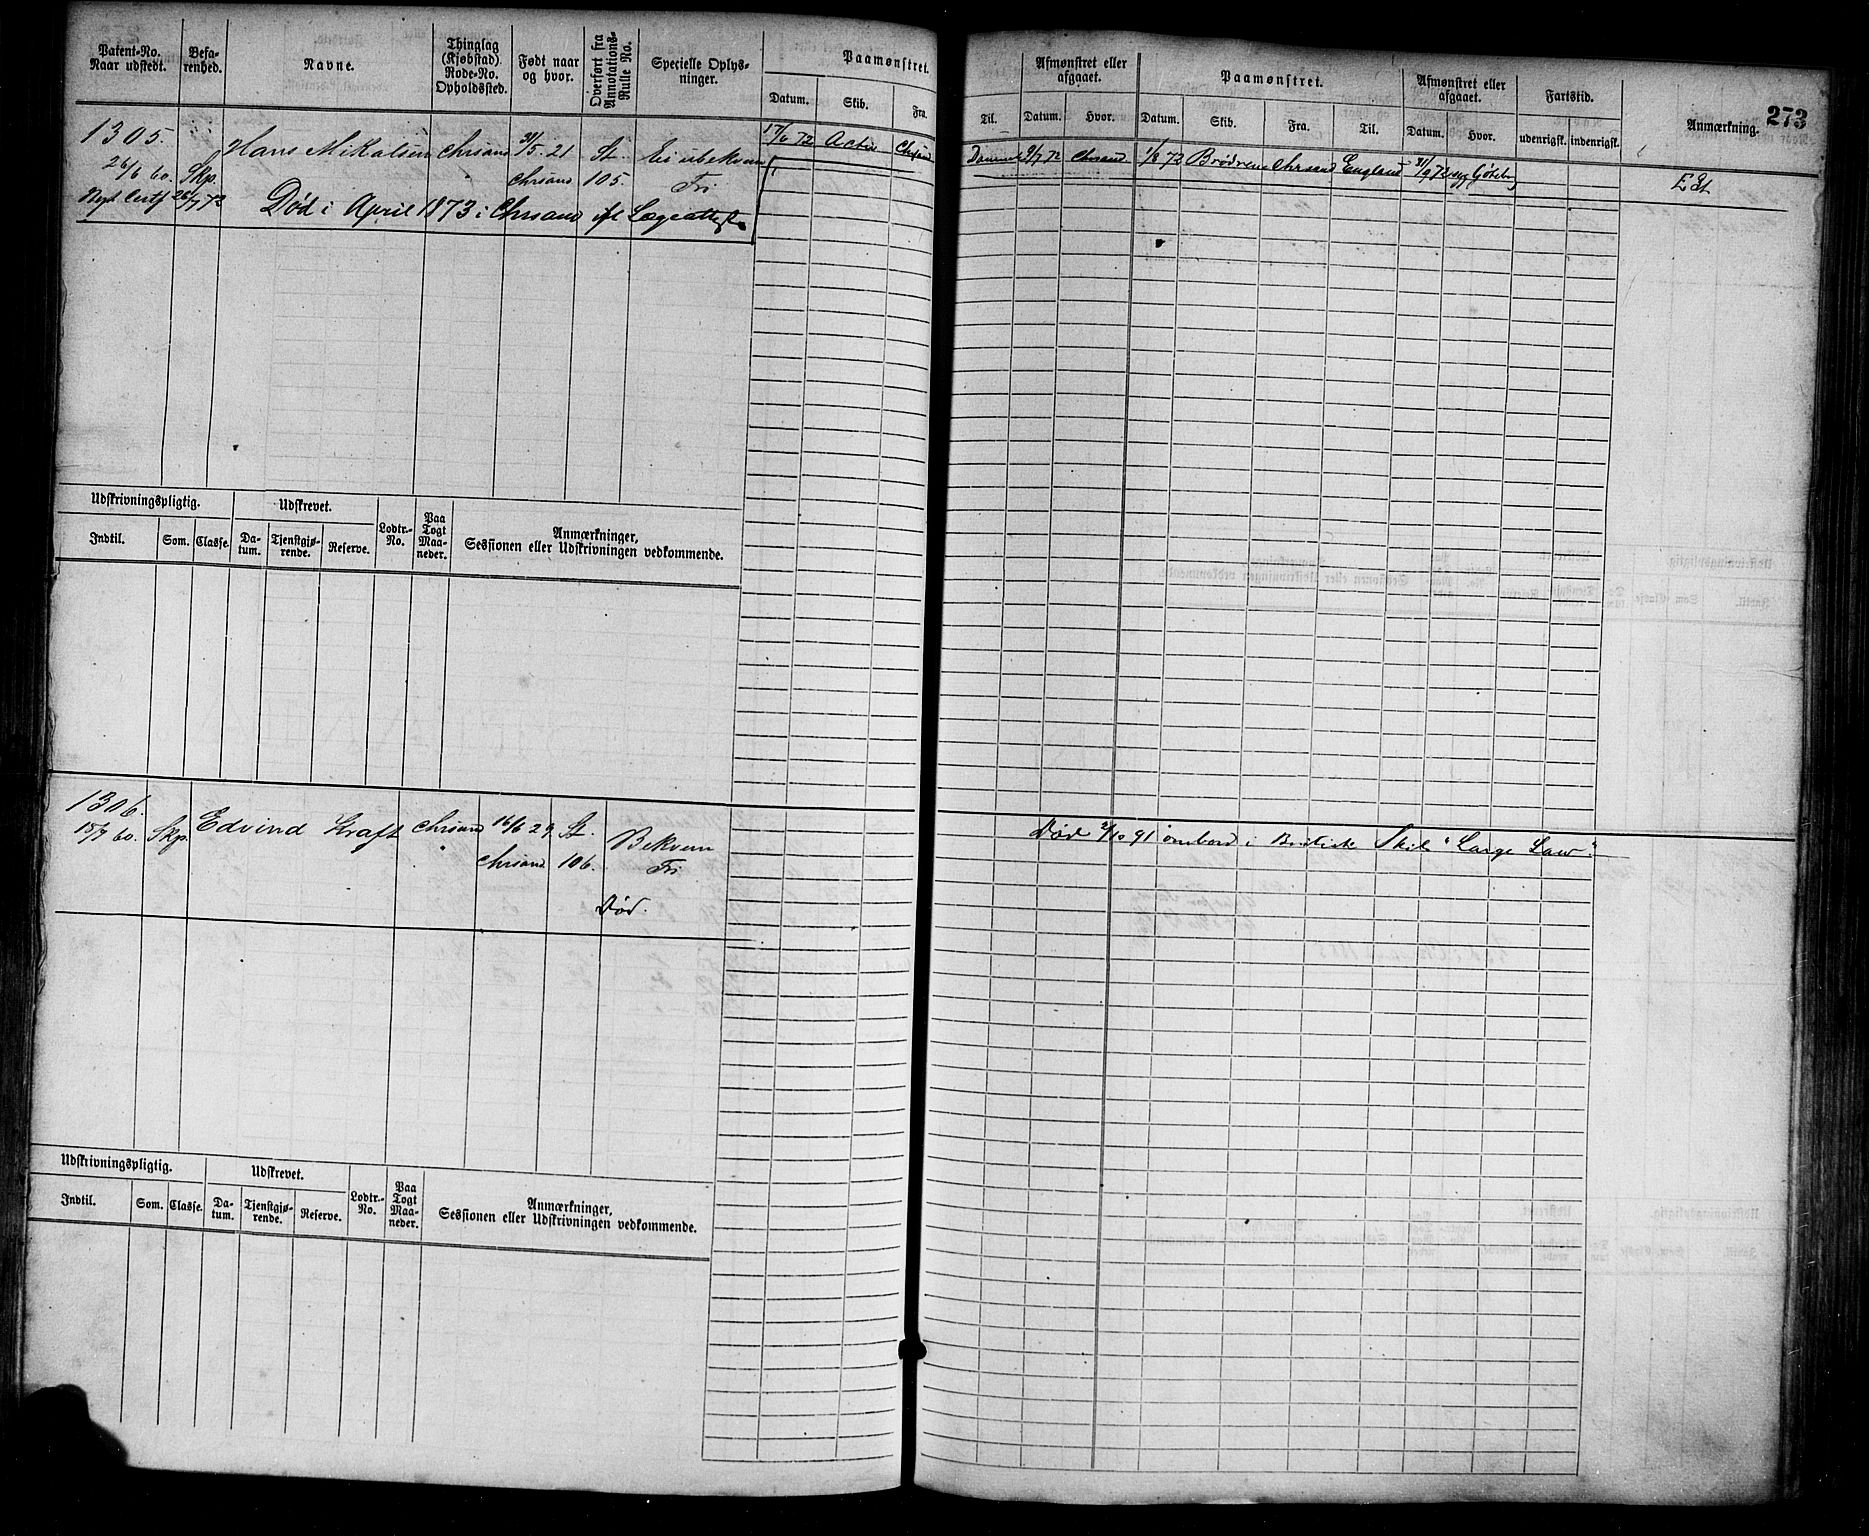 273
Patent-No. Naar udstedt. Befa-renhed. Navne. Thinglag (Kjøbstad). Rode-No. Opholdssted. Født naar og hvor. Overført fra Annotations-Rulle No. Specielle Oplys-ninger. Paamønstret.
Datum. Skib. Fra.
Afmønstret eller afgaaet. Paamønstret. Afmønstret eller afgaaet. Fartstid. Anmærkning.
Til. Datum. Hvor. Datum. Skib. Fra. Til. Datum. Hvor. udenrigsk. indenrigsk.
1305. Hans Mikalsen Chrsand 31/5. 21 St. Ei ubekvem 17/6 72 Activ Chrsand
9/7 72 Chrsand 1/8 72 Brødrene Chrsand England 31/9 72 Gøteborg
26/6 60. Skp. " Chrsand 105. Fri
Nyt Certf 26/7 72 Død i April 1873 i Chrsand ifl Lægeattest.
Udskrivningspligtig. Udskrevet. Lodtr.-No. Paa Togt Maa-neder. Anmærkninger, Sessionen eller Udskrivningen vedkommende.
Indtil. Som. Classe. Da-tum. Tjenstgjø-rende. Reserve.
1306. Edvind Kraft Chrsand 16/6 29 St. Bekvem
Død 2/10 91 ombord i Britisk Skib "Large Law".
15/9 60. Skp. " Chrsand 106. Fri
Død.
Udskrivningspligtig. Udskrevet. Lodtr.-No. Paa Togt Maa-neder. Anmærkninger, Sessionen eller Udskrivningen vedkommende.
Indtil. Som. Classe. Da-tum. Tjenstgjø-rende. Reserve.